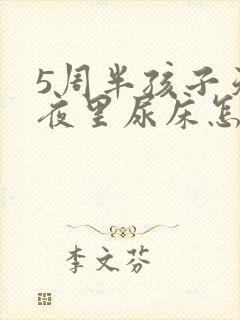 5周半孩子
夜里尿床怎
李文芬